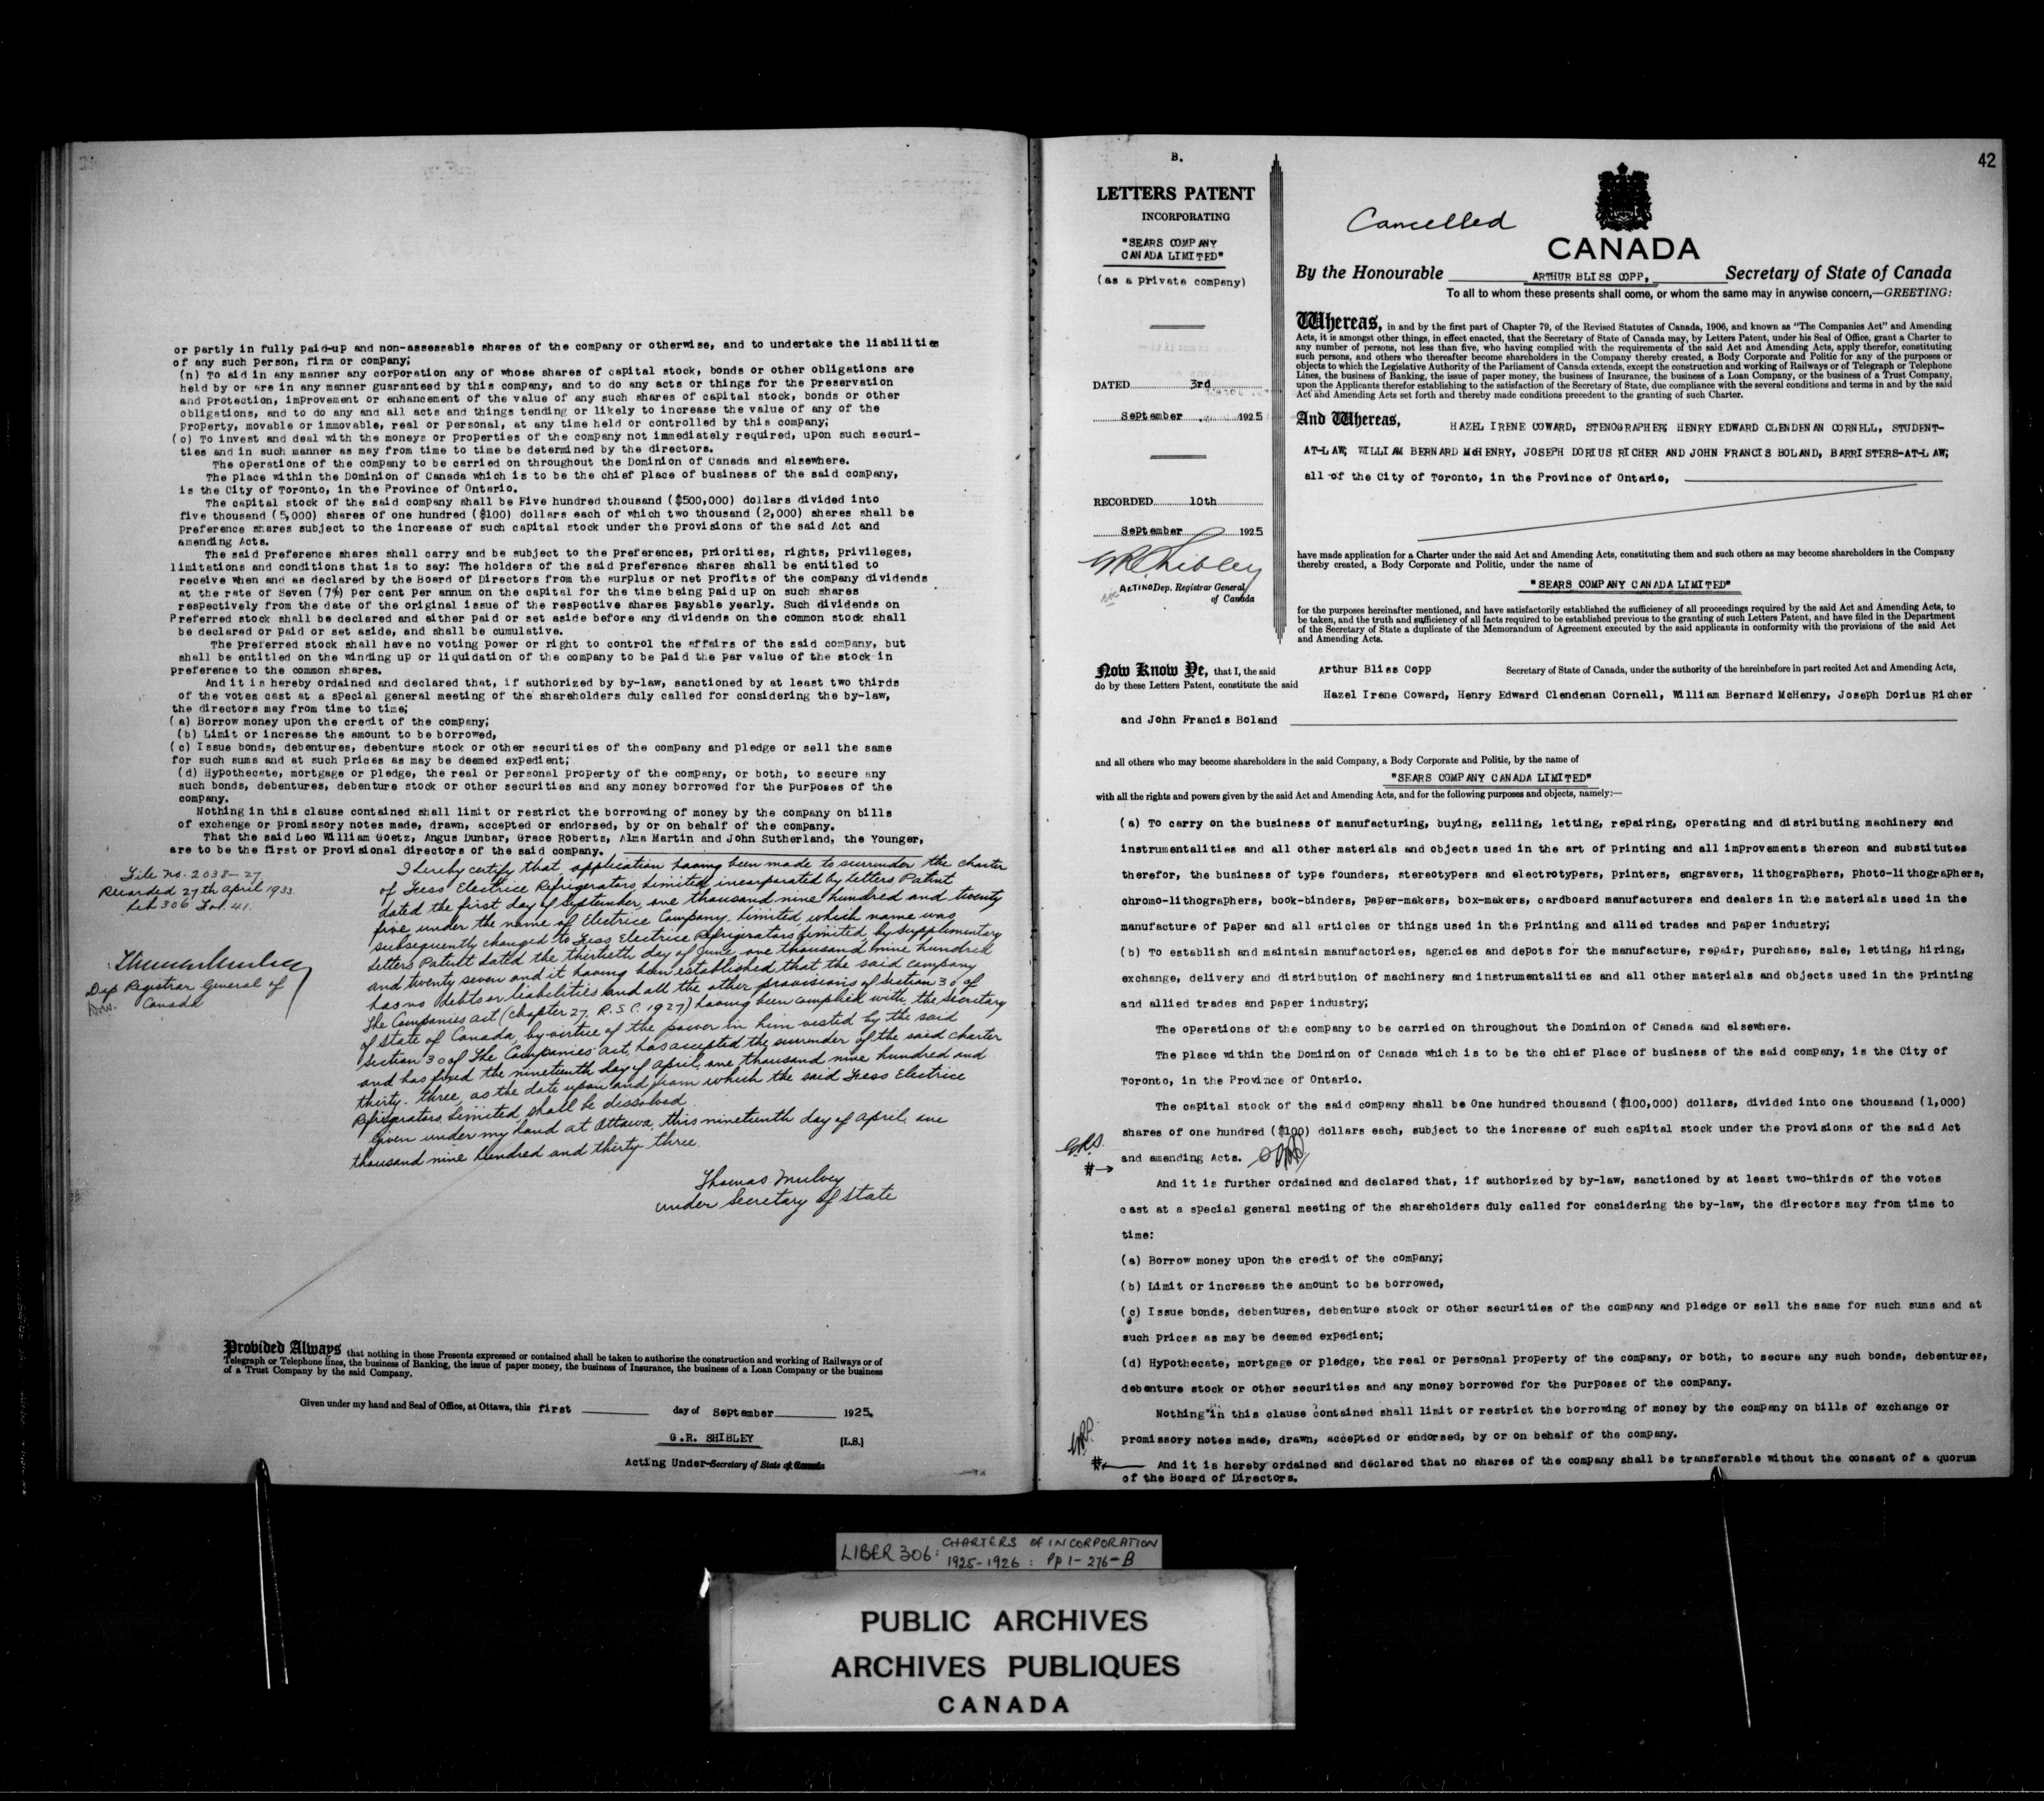 or partly in fully paid-up and non-assessable shares of the company or otherwise, and to undertake the liabilities
of any such person, firm or company;
(n) To aid in any manner any corporation any of whose shares of capital stock, bonds or other obligations are
held by or are in any manner guaranteed by this company, and to do any acts or things for the preservation
and protection, improvement or enhancement of the value of any such shares of capital stock, bonds or other
obligations, and to do any and all acts and things tending or likely to increase the value of any of the
property, movable or immovable, real or personal, at any time held or controlled by this company;
(o) To invest and deal with the moneys or properties of the company not immediately required, upon such securi-
ties and in such manner as may from time to time be determined by the directors.
The operations of the company to be carried on throughout the Dominion of Canada and elsewhere.
The place within the Dominion of Canada which is to be the chief place of business of the said company,
is the City of Toronto, in the Province of Ontario.
The capital stock of the said company shall be Five hundred thousand ($500,000) dollars divided into
five thousand (5,000) shares of one hundred ($100) dollars each of which two thousand (2,000) shares shall be
preference shares subject to the increase of such capital stock under the provisions of the said Act and
amending Acts.
The said preference shares shall carry and be subject to the preferences, priorities, rights, privileges,
limitations and conditions that is to say: The holders of the said preference shares shall be entitled to
receive when and as declared by the Board of Directors from the surplus or net profits of the company dividends
at the rate of Seven (7%) per cent per annum on the capital for the time being paid up on such shares
respectively from the date of the original issue of the respective shares payable yearly. Such dividends on
Preferred stock shall be declared and either paid or set aside before any dividends on the common stock shall
be declared or paid or set aside, and shall be cumulative.
The preferred stock shall have no voting power or right to control the affairs of the said company, but
shall be entitled on the winding up or liquidation of the company to be paid the par value of the stock in
preference to the common shares.
And it is hereby ordained and declared that, if authorized by by-law, sanctioned by at least two thirds
of the votes cast at a special general meeting of the shareholders duly called for considering the by-law,
the directors may from time to time;
(a) Borrow money upon the credit of the company;
(b) Limit or increase the amount to be borrowed,
(c) Issue bonds, debentures, debenture stock or other securities of the company and pledge or sell the same
for such sums and at such prices as may be deemed expedient;
(d) Hypothecate, mortgage or pledge, the real or personal property of the company, or both, to secure any
such bonds, debentures, debenture stock or other securities and any money borrowed for the purposes of the
company.
Nothing in this clause contained shall limit or restrict the borrowing of money by the company on bills
of exchange or promissory notes made, drawn, accepted or endorsed, by or on behalf of the company.
That the said Leo William Goetz, Angus Dunbar, Grace Roberts, Alma Martin and John Sutherland, the Younger,
are to be the first or provisional directors of the said company.
File no. 2038-27
Recorded 27th April 1933
Lib 306 Fol. 41.
Thomas Mulvey
Dep Registrar General of
Canada
I hereby certify that, application having been made to surrender the charter
of Fess Electrice Refrigerators Limited incorporated by Letters Patent
dated the first day of September, one thousand nine hundred and twenty
five, under the name of Electrice Company Limited which name was
subsequently changed to Fess Electrice Refrigerators Limited, by Supplementary
Letters Patent dated the thirtieth day of June, one thousand nine hundred
and twenty seven and it having been established that the said company
has no debts or liabilities and all the other provisions of Section 30 of
The Companies Act (Chapter 27, R.S.C. 1927) having been complied with, the Secretary
of State of Canada, by virtue of the power in him vested by the said
Section 30 of The Companies Act, has accepted the surrender of the said charter
and has fixed the nineteenth day of April, one thousand nine hundred and
thirty-three, as the date upon and from which the said Fess Electrice
Refrigerators Limited, shall be dissolved.
Given under my hand at Ottawa, this nineteenth day of April, one
thousand nine hundred and thirty three.
Thomas Mulvey
under Secretary of State
Provided Always that nothing in these Presents expressed or contained shall be taken to authorize the construction and working of Railways or of
Telegraph or Telephone lines, the business of Banking, the issue of paper money, the business of Insurance, the business of a Loan Company or the business
of a Trust Company by the said Company.
Given under my hand and Seal of Office, at Ottawa, this first day of September 1925.
G.R. SHIBLEY [L.S.]
Acting Under-Secretary of State of Canada
42
B.
LETTERS PATENT
INCORPORATING
"SEARS COMPANY
CANADA LIMITED"
(as a private company)
DATED 3rd
September 1925
RECORDED 10th
September 1925
GR Shibley
ACTING Dep. Registrar General
of Canada
Cancelled
CANADA
By the Honourable ARTHUR BLISS COPP, Secretary of State of Canada
To all to whom these presents shall come, or whom the same may in anywise concern,—GREETING:
Whereas, in and by the first part of Chapter 79, of the Revised Statutes of Canada, 1906, and known as "The Companies Act" and Amending
Acts, it is amongst other things, in effect enacted, that the Secretary of State of Canada may, by Letters Patent, under his Seal of Office, grant a Charter to
any number of persons, not less than five, who having complied with the requirements of the said Act and Amending Acts, apply therefor, constituting
such persons, and others who thereafter become shareholders in the Company thereby created, a Body Corporate and Politic for any of the purposes or
objects to which the Legislative Authority of the Parliament of Canada extends, except the construction and working of Railways or of Telegraph or Telephone
Lines, the business of Banking, the issue of paper money, the business of Insurance, the business of a Loan Company, or the business of a Trust Company,
upon the Applicants therefor establishing to the satisfaction of the Secretary of State, due compliance with the several conditions and terms in and by the said
Act and Amending Acts set forth and thereby made conditions precedent to the granting of such Charter.
And Whereas, HAZEL IRENE COWARD, STENOGRAPHER; HENRY EDWARD CLENDENAN CORNELL, STUDENT-
AT-LAW; WILLIAM BERNARD McHENRY, JOSEPH DORIUS RICHER AND JOHN FRANCIS BOLAND, BARRISTERS-AT-LAW;
all of the City of Toronto, in the Province of Ontario,
have made application for a Charter under the said Act and Amending Acts, constituting them and such others as may become shareholders in the Company
thereby created, a Body Corporate and Politic, under the name of
"SEARS COMPANY CANADA LIMITED"
for the purposes hereinafter mentioned, and have satisfactorily established the sufficiency of all proceedings required by the said Act and Amending Acts, to
be taken, and the truth and sufficiency of all facts required to be established previous to the granting of such Letters Patent, and have filed in the Department
of the Secretary of State a duplicate of the Memorandum of Agreement executed by the said applicants in conformity with the provisions of the said Act
and Amending Acts.
Now Know Ye, that I, the said Arthur Bliss Copp Secretary of State of Canada, under the authority of the hereinbefore in part recited Act and Amending Acts,
do by these Letters Patent, constitute the said
Hazel Irene Coward, Henry Edward Clendenan Cornell, William Bernard McHenry, Joseph Dorius Richer
and John Francis Boland
and all others who may become shareholders in the said Company, a Body Corporate and Politic, by the name of
"SEARS COMPANY CANADA LIMITED"
with all the rights and powers given by the said Act and Amending Acts, and for the following purposes and objects, namely:—
(a) To carry on the business of manufacturing, buying, selling, letting, repairing, operating and distributing machinery and
instrumentalities and all other materials and objects used in the art of printing and all improvements thereon and substitutes
therefor, the business of type founders, stereotypers and electrotypers, printers, engravers, lithographers, photo-lithographers,
chromo-lithographers, book-binders, paper-makers, box-makers, cardboard manufacturers and dealers in the materials used in the
manufacture of paper and all articles or things used in the printing and allied trades and paper industry;
(b) To establish and maintain manufactories, agencies and depots for the manufacture, repair, purchase, sale, letting, hiring,
exchange, delivery and distribution of machinery and instrumentalities and all other materials and objects used in the printing
and allied trades and paper industry;
The operations of the company to be carried on throughout the Dominion of Canada and elsewhere.
The place within the Dominion of Canada which is to be the chief place of business of the said company, is the City of
Toronto, in the Province of Ontario.
The capital stock of the said company shall be One hundred thousand ($100,000) dollars, divided into one thousand (1,000)
shares of one hundred ($100) dollars each, subject to the increase of such capital stock under the provisions of the said Act
G.R.S.
and amending Acts.
#→
And it is further ordained and declared that, if authorized by by-law, sanctioned by at least two-thirds of the votes
cast at a special general meeting of the shareholders duly called for considering the by-law, the directors may from time to
time:
(a) Borrow money upon the credit of the company;
(b) Limit or increase the amount to be borrowed,
(c) Issue bonds, debentures, debenture stock or other securities of the company and pledge or sell the same for such sums and at
such prices as may be deemed expedient;
(d) Hypothecate, mortgage or pledge, the real or personal property of the company, or both, to secure any such bonds, debentures,
debenture stock or other securities and any money borrowed for the purposes of the company.
Nothing in this clause contained shall limit or restrict the borrowing of money by the company on bills of exchange or
promissory notes made, drawn, accepted or endorsed, by or on behalf of the company.
# And it is hereby ordained and declared that no shares of the company shall be transferable without the consent of a quorum
of the Board of Directors.
LIBER 306: CHARTERS OF INCORPORATION
1925-1926: pp 1-276-B
PUBLIC ARCHIVES
ARCHIVES PUBLIQUES
CANADA